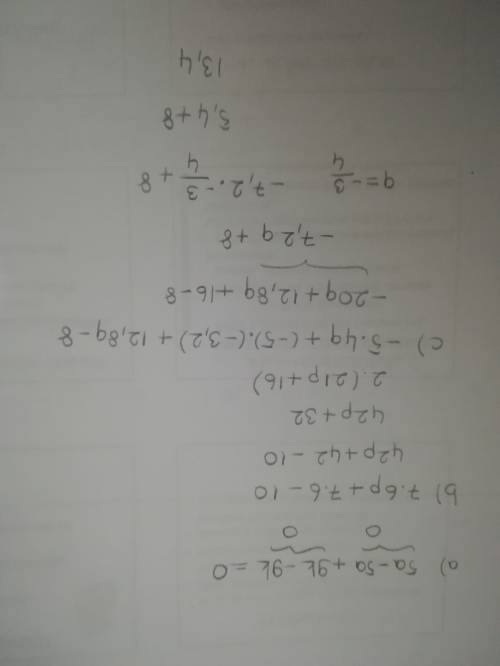 a) 5a-5a+9k-9k=0
0 0
b) 7.6p+7.6-10
42p+42-10
42p+32
2.(21p+16)
c) -5.4q+(-5).(-3,2)+12,8q-8
-20q+12,8q+16-8
-7,2q+8
q=-3/4 -7,2.-3/4+8
5,4+8
13,4